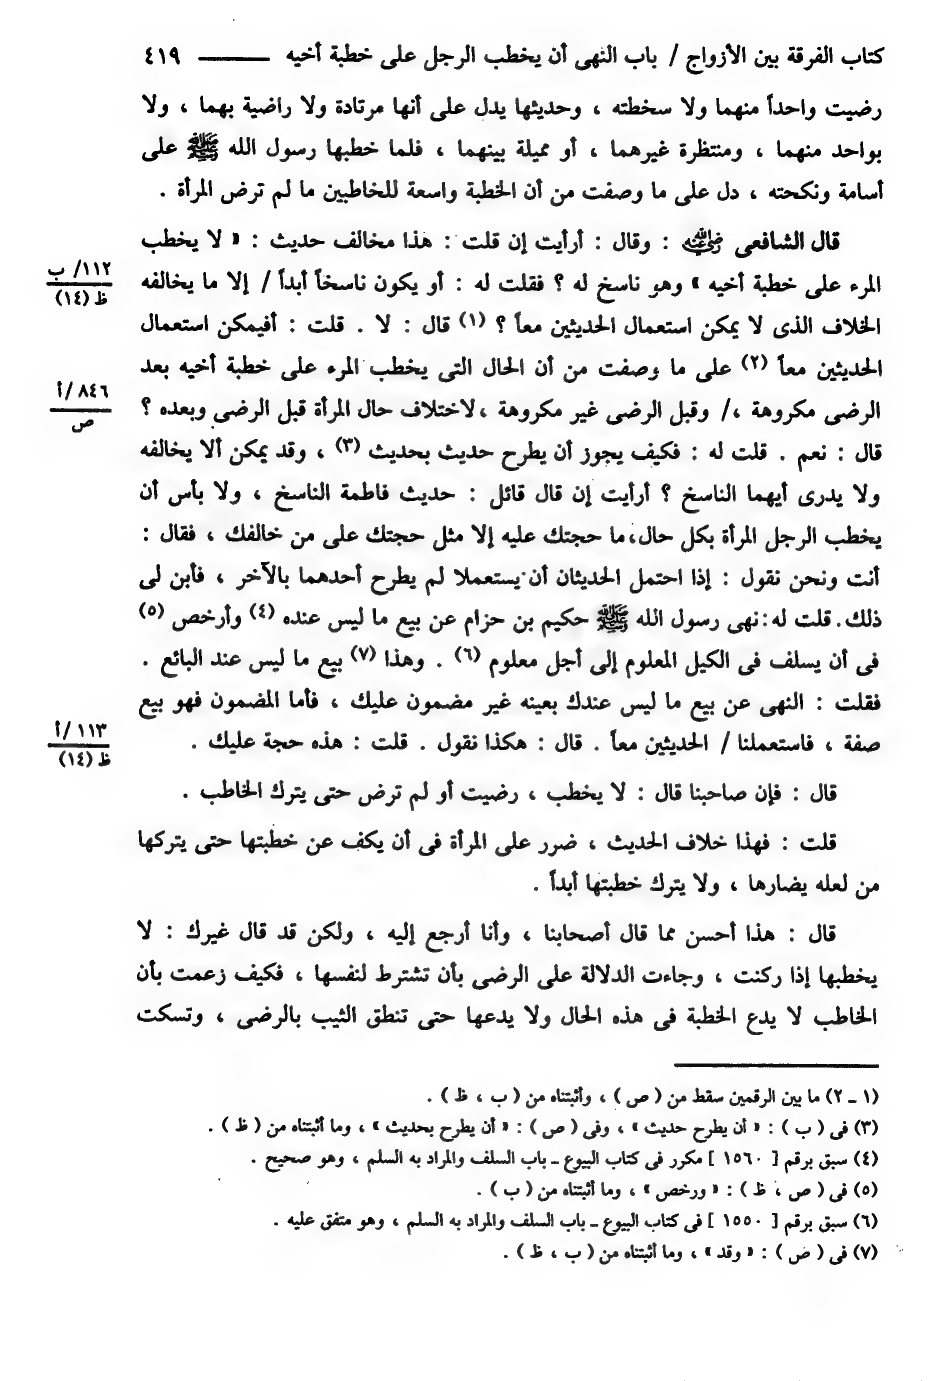 كتاب الفرقة بين الأزواج / باب النهى أن يخطب الرجل على خطبة أخيه ــــــــ ٤١٩
رضيت واحداً منهما ولا سخطته ، وحديثها يدل على أنها مرتادة ولا راضية بهما ، ولا
بواحد منهما ، ومنتظرة غيرهما ، أو مميلة بينهما ، فلما خطبها رسول الله ﷺ على
أسامة ونكحته ، دل على ما وصفت من أن الخطبة واسعة للخاطبين ما لم ترض المرأة .
قال الشافعى رَضِىَ اللهُ عنه : وقال : أرأيت إن قلت : هذا مخالف حديث : « لا يخطب
المرء على خطبة أخيه » وهو ناسخ له ؟ فقلت له : أو يكون ناسخاً أبداً / إلا ما يخالفه
١١٢/ ب
ظ (١٤)
الخلاف الذى لا يمكن استعمال الحديثين معاً ؟ (١) قال : لا . قلت : أفيمكن استعمال
الحديثين معاً (٢) على ما وصفت من أن الحال التى يخطب المرء على خطبة أخيه بعد
الرضى مكروهة ،/ وقبل الرضى غير مكروهة ،لاختلاف حال المرأة قبل الرضى وبعده ؟
٨٤٦ /أ
ص
قال : نعم . قلت له : فكيف يجوز أن يطرح حديث بحديث (٣) ، وقد يمكن ألا يخالفه
ولا يدرى أيهما الناسخ ؟ أرأيت إن قال قائل : حديث فاطمة الناسخ ، ولا بأس أن
يخطب الرجل المرأة بكل حال،ما حجتك عليه إلا مثل حجتك على من خالفك ، فقال :
أنت ونحن نقول : إذا احتمل الحديثان أن يستعملا لم يطرح أحدهما بالآخر ، فأبن لى
ذلك. قلت له:نهى رسول الله ﷺ حكيم بن حزام عن بيع ما ليس عنده (٤) وأرخص (٥)
فى أن يسلف فى الكيل المعلوم إلى أجل معلوم (٦) . وهذا (٧) بيع ما ليس عند البائع .
فقلت : النهى عن بيع ما ليس عندك بعينه غير مضمون عليك ، فأما المضمون فهو بيع
صفة ، فاستعملنا / الحديثين معاً . قال : هكذا نقول . قلت : هذه حجة عليك .
١١٣ /أ
ظ (١٤)
قال : فإن صاحبنا قال : لا يخطب ، رضيت أو لم ترض حتى يترك الخاطب .
قلت : فهذا خلاف الحديث ، ضرر على المرأة فى أن يكف عن خطبتها حتى يتركها
من لعله يضارها ، ولا يترك خطبتها أبداً .
قال : هذا أحسن مما قال أصحابنا ، وأنا أرجع إليه ، ولكن قد قال غيرك : لا
يخطبها إذا ركنت ، وجاءت الدلالة على الرضى بأن تشترط لنفسها ، فكيف زعمت بأن
الخاطب لا يدع الخطبة فى هذه الحال ولا يدعها حتى تنطق الثيب بالرضى ، وتسكت
(١ ـ ٢) ما بين الرقمين سقط من ( ص ) ، وأثبتناه من ( ب ، ظ ) .
(٣) فى ( ب ) : « أن يطرح حديث » ، وفى ( ص ) : « أن يطرح بحديث » ، وما أثبتناه من ( ظ ) .
(٤) سبق برقم [ ١٥٦٠ ] مكرر فى كتاب البيوع ـ باب السلف والمراد به السلم ، وهو صحيح .
(٥) فى ( ص ، ظ ) : « ورخص » ، وما أثبتناه من ( ب ) .
(٦) سبق برقم [ ١٥٥٠ ] فى كتاب البيوع ـ باب السلف والمراد به السلم ، وهو متفق عليه .
(٧) فى ( ص ) : « وقد » ، وما أثبتناه من ( ب ، ظ ) .